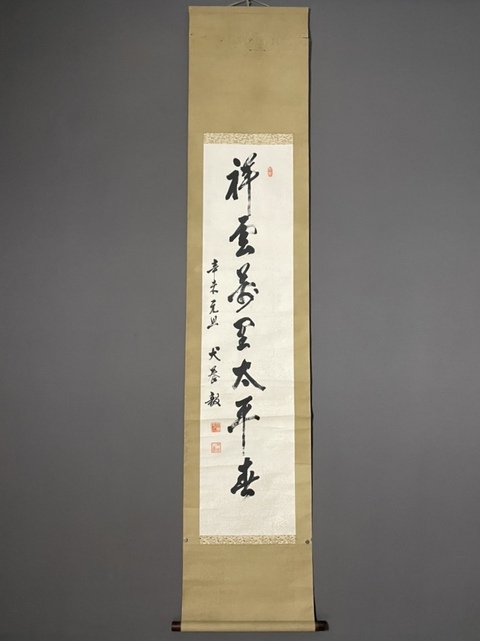 祥雲萬里太平春
辛未元旦 犬養毅